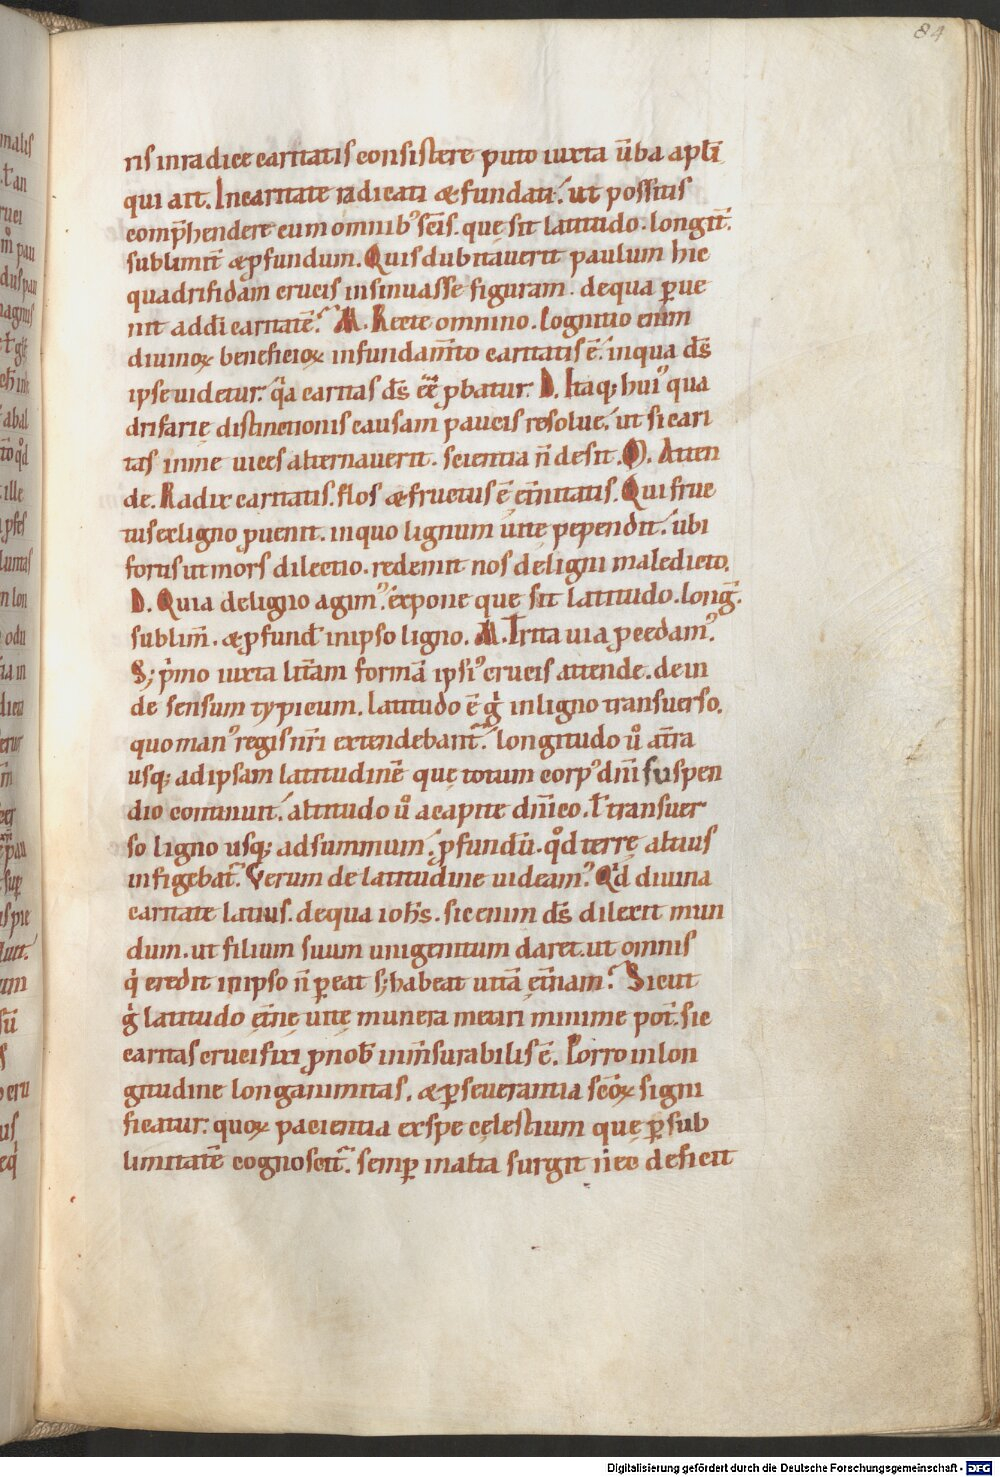 84
ris inradice caritatis consistere puto iuxta ũba apłi
qui ait. Incaritate radicati & fundati. ut possitis
comp̃hendere cum omnib' sc̃is. quę sit latitudo. longit̃.
sublimit̃ & p̱fundum. Quis dubitauerit paulum hic
quadrifidam crucis insinuasse figuram. dequa p̱ue
nit addi caritatẽ. M. Recte omnino. Cognitio enim
diuinoꝝ beneficioꝝ infundam̃to caritatis ẽ. inqua d̃s
ipse uidetur. q̇a caritas d̃s eẽ ꝓbatur. D. Itaq; hui' qua
drifarię distinctionis causam paucis resolue, ut si cari
tas inme uices alternauerit. scientia ñ desit. M. Atten
de. Radix caritatis. flos & fructus ẽ et̃nitatis. Qui fruc
tus exligno ꝓuenit. inquo lignum uitę pependit. ubi
fortis ut mors dilectio. redemit nos deligni maledicto.
D. Quia deligno agim'. expone quę sit latitudo. long̃.
sublim̃. & ꝓfund̃ inipso ligno. M. Trita uia p̱cedam'.
S; ṗmo iuxta litt̃am formã ipsi' crucis attende. dein
de sensum typicum. latitudo ẽ g̊ inligno transuerso.
quo man' regis nr̃i extendebant̃. longitudo ů at̃ra
usq; adipsam latitudinẽ quę totum corp' dñi suspen
dio continuit. altitudo ů acapite dñico. ł transuer
so ligno usq; adsummum. ꝓfundũ. qd̊ terrę altius
infigebat̃. Verum de latitudine uideam'. Qd̊ diuina
caritate latius. dequa ioh̃s. sic enim d̃s dilexit mun
dum. ut filium suum unigenitum daret. ut omnis
q̇ credit inipso ñ p̱eat s; habeat uitã et̃nam. Sicut
g̊ latitudo et̃nę uitę munera metiri minime pot̃. sic
caritas crucifixi ꝓnob̃ inm̃surabilis ẽ. Porro inlon
gitudine longanimitas. & p̱seuerantia sc̃oꝝ signi
ficatur. quoꝝ pacientia exspe cęlestium quę p̱ sub
limitatẽ cognoscit̃. semp̱ inalta surgit nec deficit
Digitalisierung gefördert durch die Deutsche Forschungsgemeinschaft - DFG